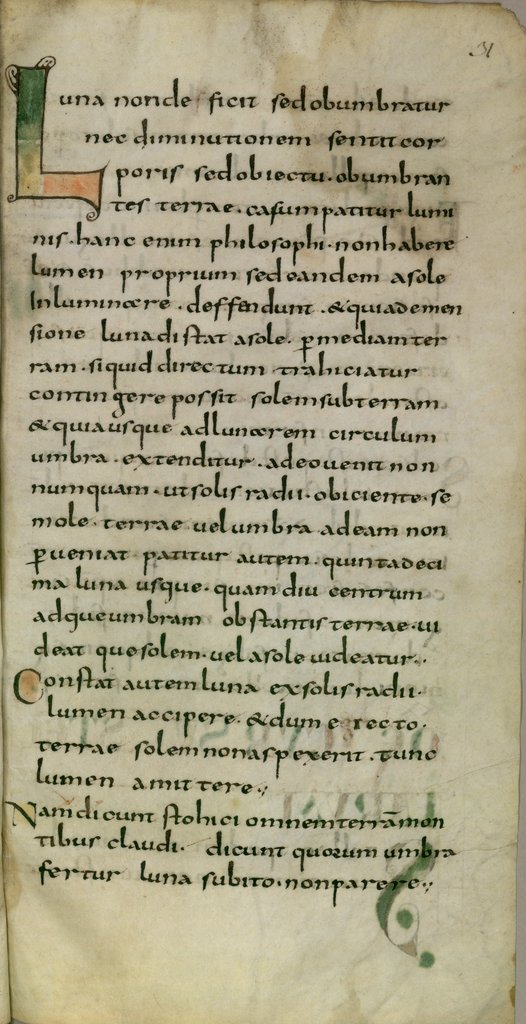 31
Luna non de ficit sed obumbratur
nec diminutionem sentit cor
poris sed obiectu · obumbran
tes terrae · casum patitur lumi
nis · hanc enim philosophi · non habere
lumen proprium sed eandem a sole
Inluminare · deffendunt · & quia demen
sione luna distat a sole · p̱ mediam ter
ram · si quid directum trahiciatur
contingere possit solem sub terram
& quia usque ad lunarem circulum
umbra · extenditur · adeo uenit non
numquam · ut solis radii · obiciente · se
mole · terrae uel umbra ad eam non
p̱ueniat patitur autem · quinta deci
ma luna usque · quam diu centrum
adque umbram obstantis terrae · ui
deat que solem · uel a sole uideatur ·,
Constat autem luna ex solis radii ·
lumen accipere · & dum e recto ·
terrae solem non aspexerit · tunc
lumen amittere ·,
Nam dicunt stohici omnem terrā mon
tibus claudi · dicunt quorum umbra
fertur luna subito · non parere ·,